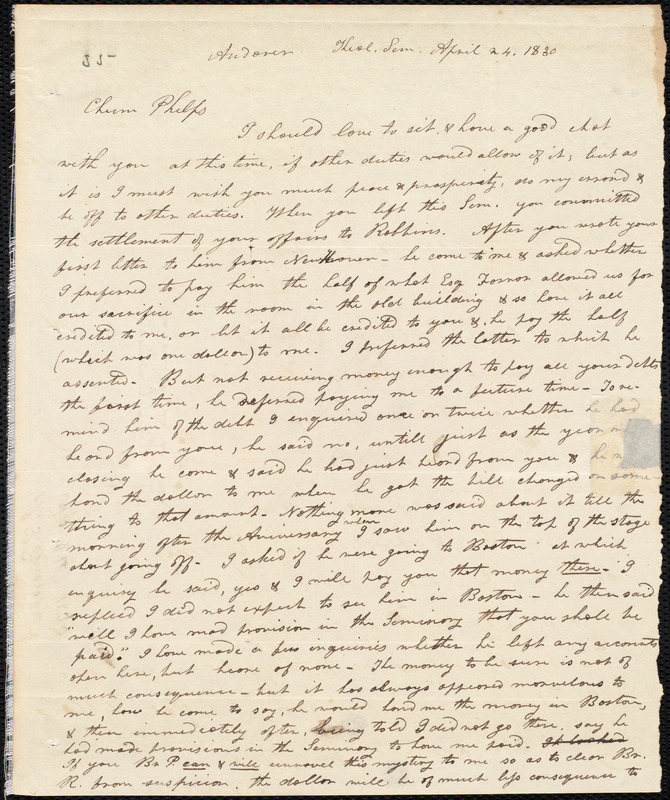 22-
Andover Theol. Sem. April 24. 1830
Chum Phelps
I should love to sit, & have a good chat
with you at this time, if other duties would allow of it; but as
it is I must wish you much peace & prosperity, do my errand &
be off to other duties. When you left this Sem. you committed
the settlement of your affairs to Robbins. After you wrote your
first letter to him from New Haven - he came to me & asked whether
I preferred to pay him the half of what Esq Farrar allowed us for
our sacrifice in the room in the old building & so have it all
credited to me, or let it all be credited to you &, he pay the half
(which was one dollar) to me. I preferred the latter to which he
assented. But not receiving money enough to pay all your debts
the first time, he deferred paying me to a future time - To re-
mind him of the debt I enquired once or twice whether he had
heard from you, he said no, untill just as the year
closing he came & said he had just heard from you & he
hand the dollar to me when he got the bill changed or some
thing to that amount. Nothing more was said about it till the
morning after the Aniversary when I saw him on the top of the stage
about going off. I asked if he were going to Boston at which
enquiry he said, yes & I will pay you that money there - I
replied I did not expect to see him in Boston - he then said
"well I have mad provision in the Seminary that you shall be
paid." I have made a few inquiries whether he left any accounts
open here, but heare of none - The money to be sure is not of
much consequence - but it has always appeared marvelous to
me, how he come to say, he would hand me the money in Boston,
& then immediately after, being told I did not go there, say he
had made provisions in the Seminary to have me paid. It looked
If you Br P. can & will unravel this mystery to me so as to clear Br.
R. from suspicion, the dollar will be of much less consequence to